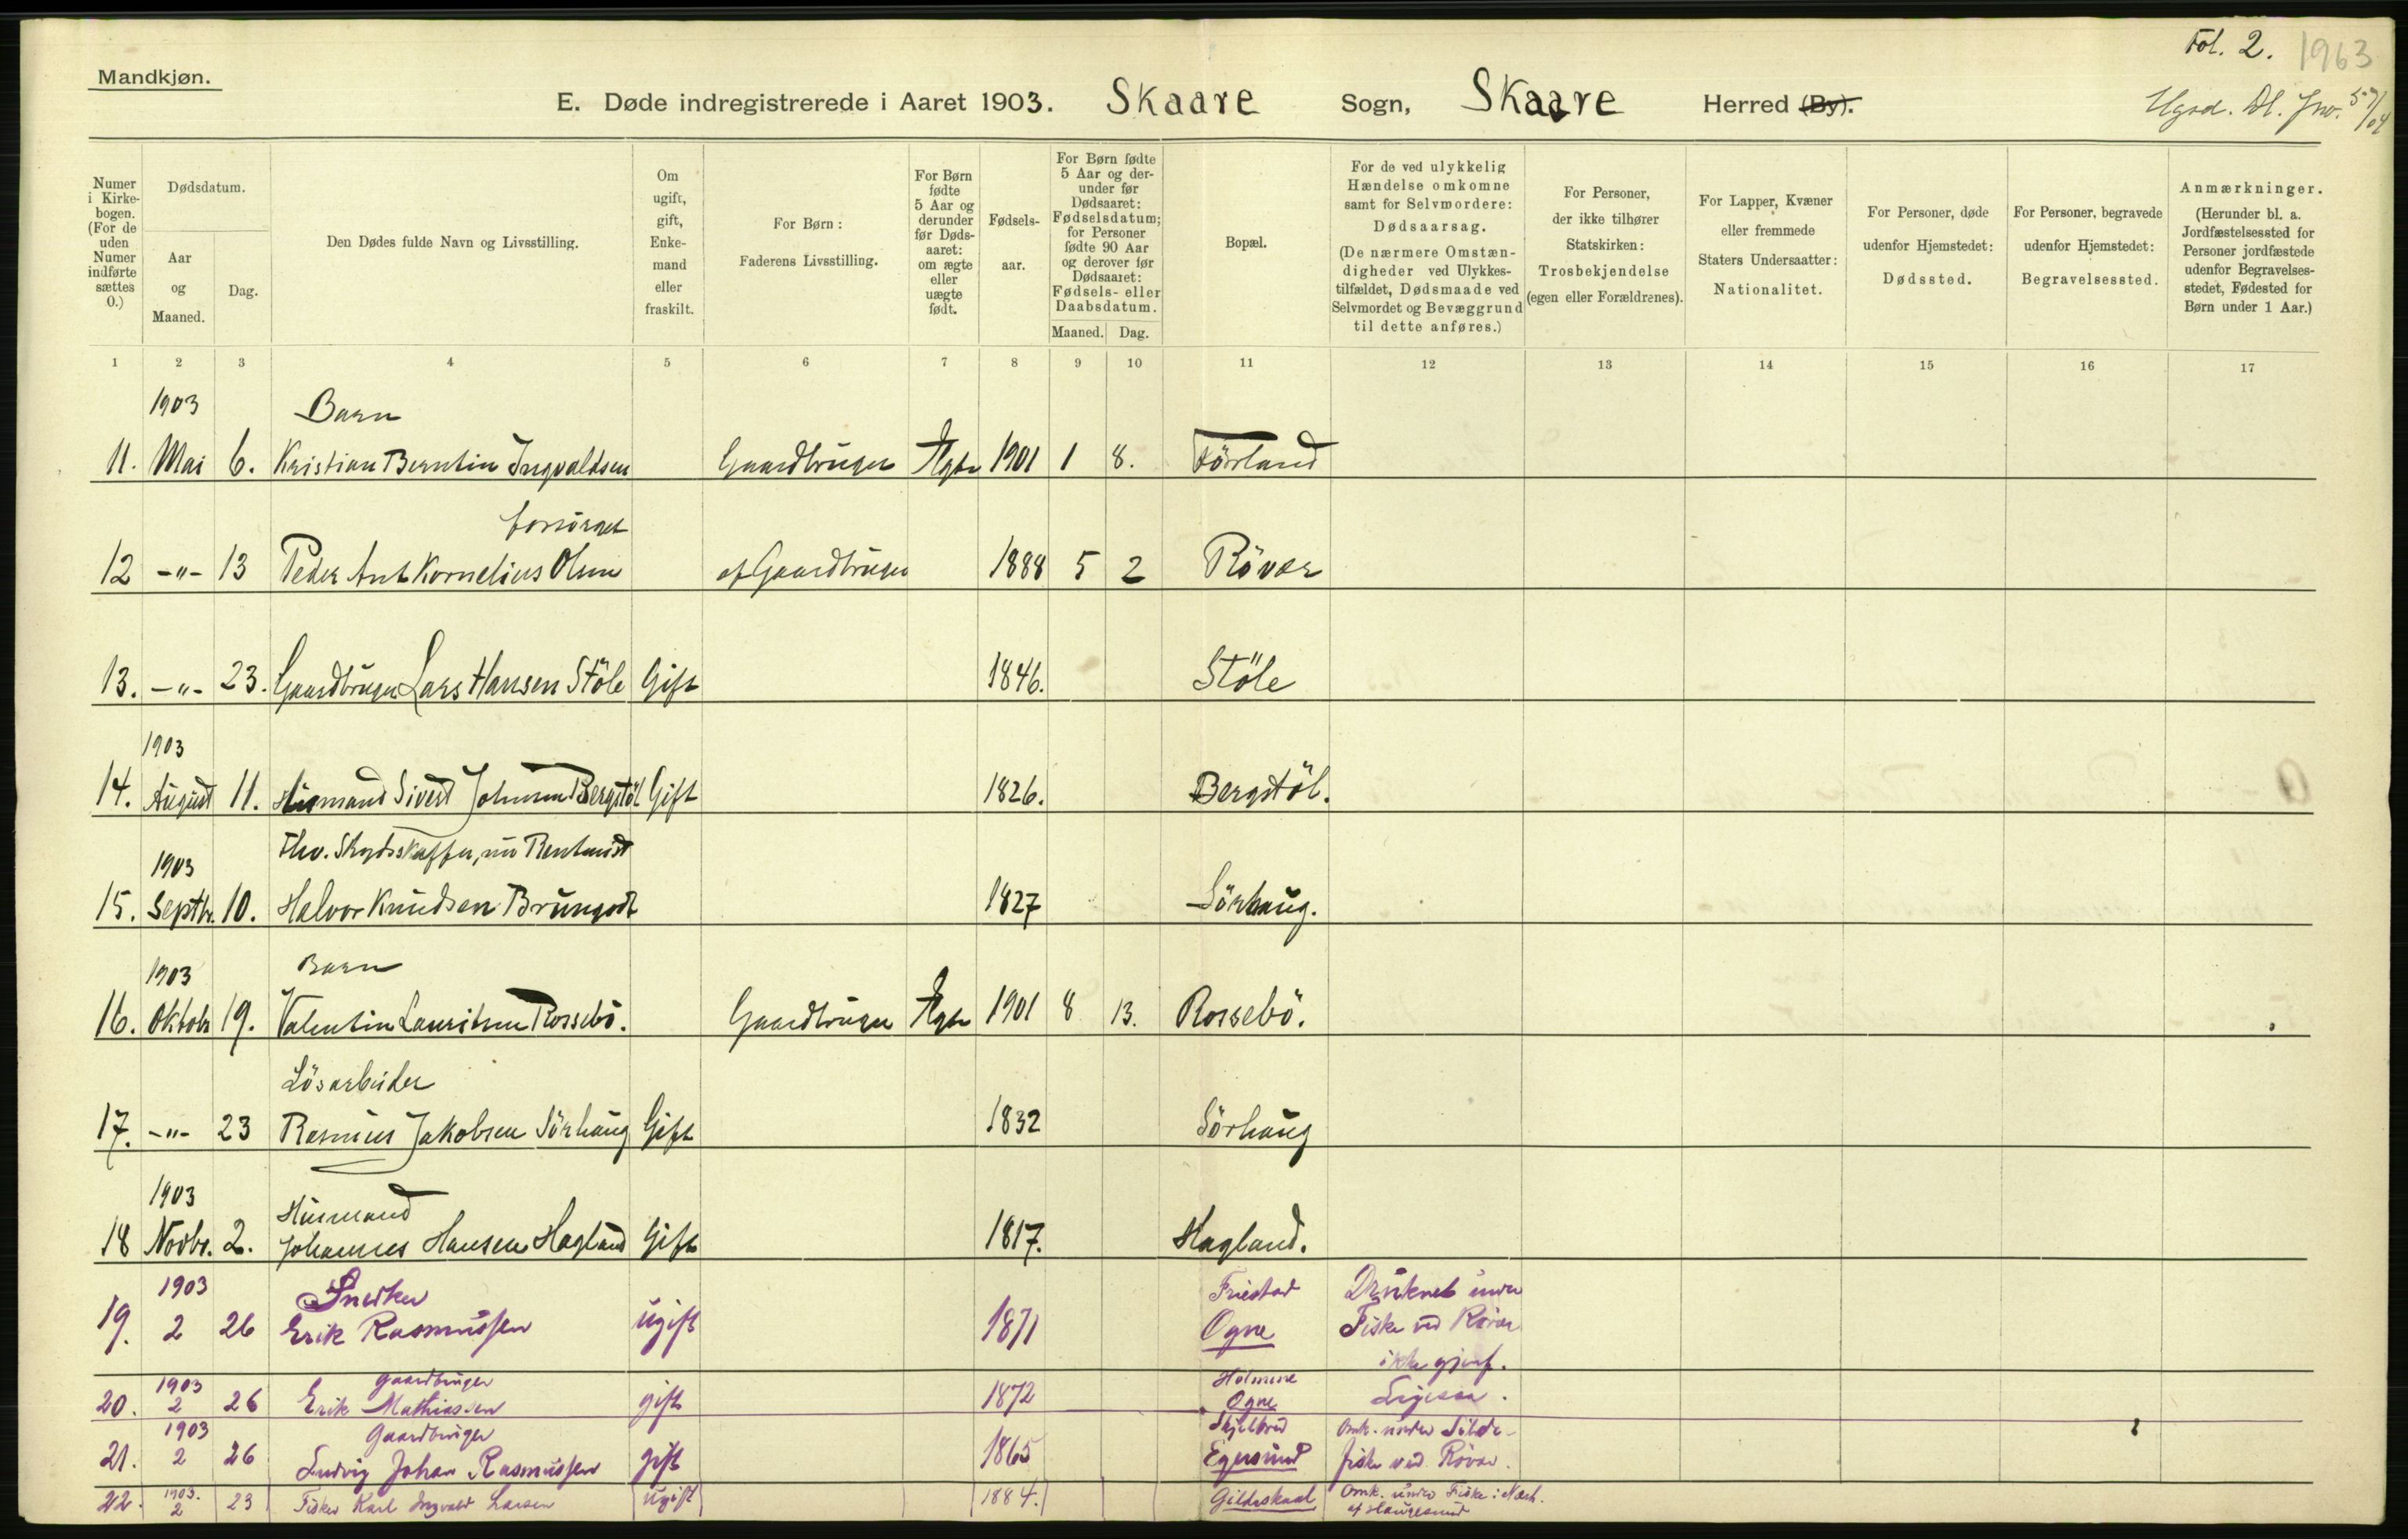 Mandkjøn.
Fol. 2. 1963
E. Døde indregistrerede i Aaret 1903. Skaare Sogn, Skaare Herred (By).
Numer i Kirke-bogen. (For de uden Numer indførte sættes 0.)
Dødsdatum.
Aar og Maaned.
Dag.
Den Dødes fulde Navn og Livsstilling.
Om ugift, gift, Enke-mand eller fraskilt.
For Børn: Faderens Livsstilling.
For Børn fødte 5 Aar og derunder før Døds-aaret: om ægte eller uægte født.
Fødsels-aar.
For Børn fødte 5 Aar og der-under før Dødsaaret: Fødselsdatum; for Personer fødte 90 Aar og derover før Dødsaaret: Fødsels- eller Daabsdatum.
Maaned. Dag.
Bopæl.
For de ved ulykkelig Hændelse omkomne samt for Selvmordere: Dødsaarsag. (De nærmere Omstæn-digheder ved Ulykkes-tilfældet, Dødsmaade ved Selvmordet og Bevæggrund til dette anføres.)
For Personer, der ikke tilhører Statskirken: Trosbekjendelse (egen eller Forældrenes).
For Lapper, Kvæner eller fremmede Staters Undersaatter: Nationalitet.
For Personer, døde udenfor Hjemstedet: Dødssted.
For Personer, begravede udenfor Hjemstedet: Begravelsessted.
Anmærkninger. (Herunder bl. a. Jordfæstelsessted for Personer jordfæstede udenfor Begravelses-stedet, Fødested for Børn under 1 Aar.)
1 2 3 4 5 6 7 8 9 10 11 12 13 14 15 16 17
1903 Barn
11. Mai 6. Kristian Berntin Ingvaldsen Gaardbruger Ægte 1901 1 8. Førland
forsørget
12 -"- 13 Peder Ant Kornelius Olsen af Gaardbruger 1888 5 2 Röver
13. -"- 23. Gaardbruger Lars Hansen Stöle Gift 1846. Stöle
1903
14. August 11. Husmand Sivert Johnsen Bergstöl Gift 1826. Bergstöl.
Fhv. Skydsskaffer, nu Rentenist
1903
15. Septbr. 10. Halvor Knudsen Brungodt 1827 Sörhaug.
1903 Barn
16. Oktobr 19. Valentin Lauritsen Rossebö. Gaardbruger Ægte 1901 8 13. Rossebö.
Lösarbeider
17. -"- 23 Rasmus Jakobsen Sörhaug Gift 1832 Sörhaug
1903 Husmand
18 Novbr. 2. Johannes Hansen Hagland Gift 1817. Hagland.
1903 Snedker Friestad Druknet under
19. 2 26 Erik Rasmussen ugift 1871 Ogne Fiske ved Röver
ikke gjenf.
1903 Gaardbruger Holmene
20. 2 26 Erik Mathiassen gift 1872 Ogne Ligesaa.
1903 Gaardbruger Skjelbred Omk. under Silde-
21. 2 26 Ludvig Johan Rasmussen gift 1865 Egersund fiske ved Röver.
22. 1903. 2 23 Fisker Karl Ingvald Larsen Ugift 1884. Gildeskaal Omk. under Fiske i Nærh.
af Haugesund